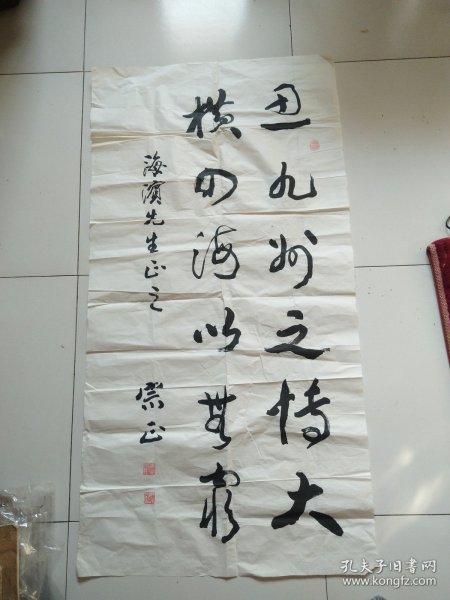 思九州之博大
横四海以无穷
海滨先生正之
崇正
孔夫子旧书网
www.kongfz.com